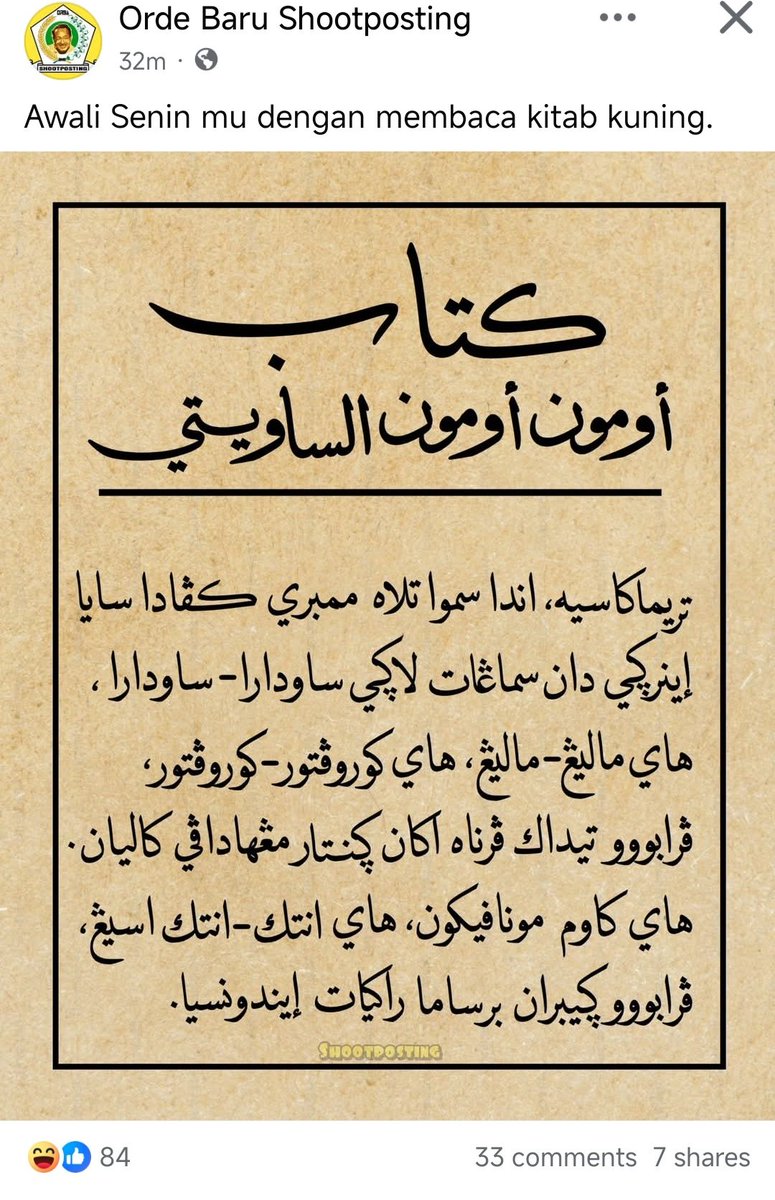 Orde Baru Shootposting
32m
Awali Senin mu dengan membaca kitab kuning.
كتاب
أومون أومون الساويتي
تريماكاسيه، اندا سموا تلاه ممبري كڤادا سايا
إينرڮي دان سماڠات لاڮي ساودارا-ساودارا،
هاي ماليڠ-ماليڠ، هاي كوروڤتور-كوروڤتور،
ڤرابووو تيداك ڤرناه اكان ڮنتار مڠهاداڤي كاليان.
هاي كاوم مونافيكون، هاي انتك-انتك اسيڠ،
ڤرابووو ڮيبران برساما راكيات إيندونسيا.
SHOOTPOSTING
84
33 comments 7 shares
ORBA
SHOOTPOSTING